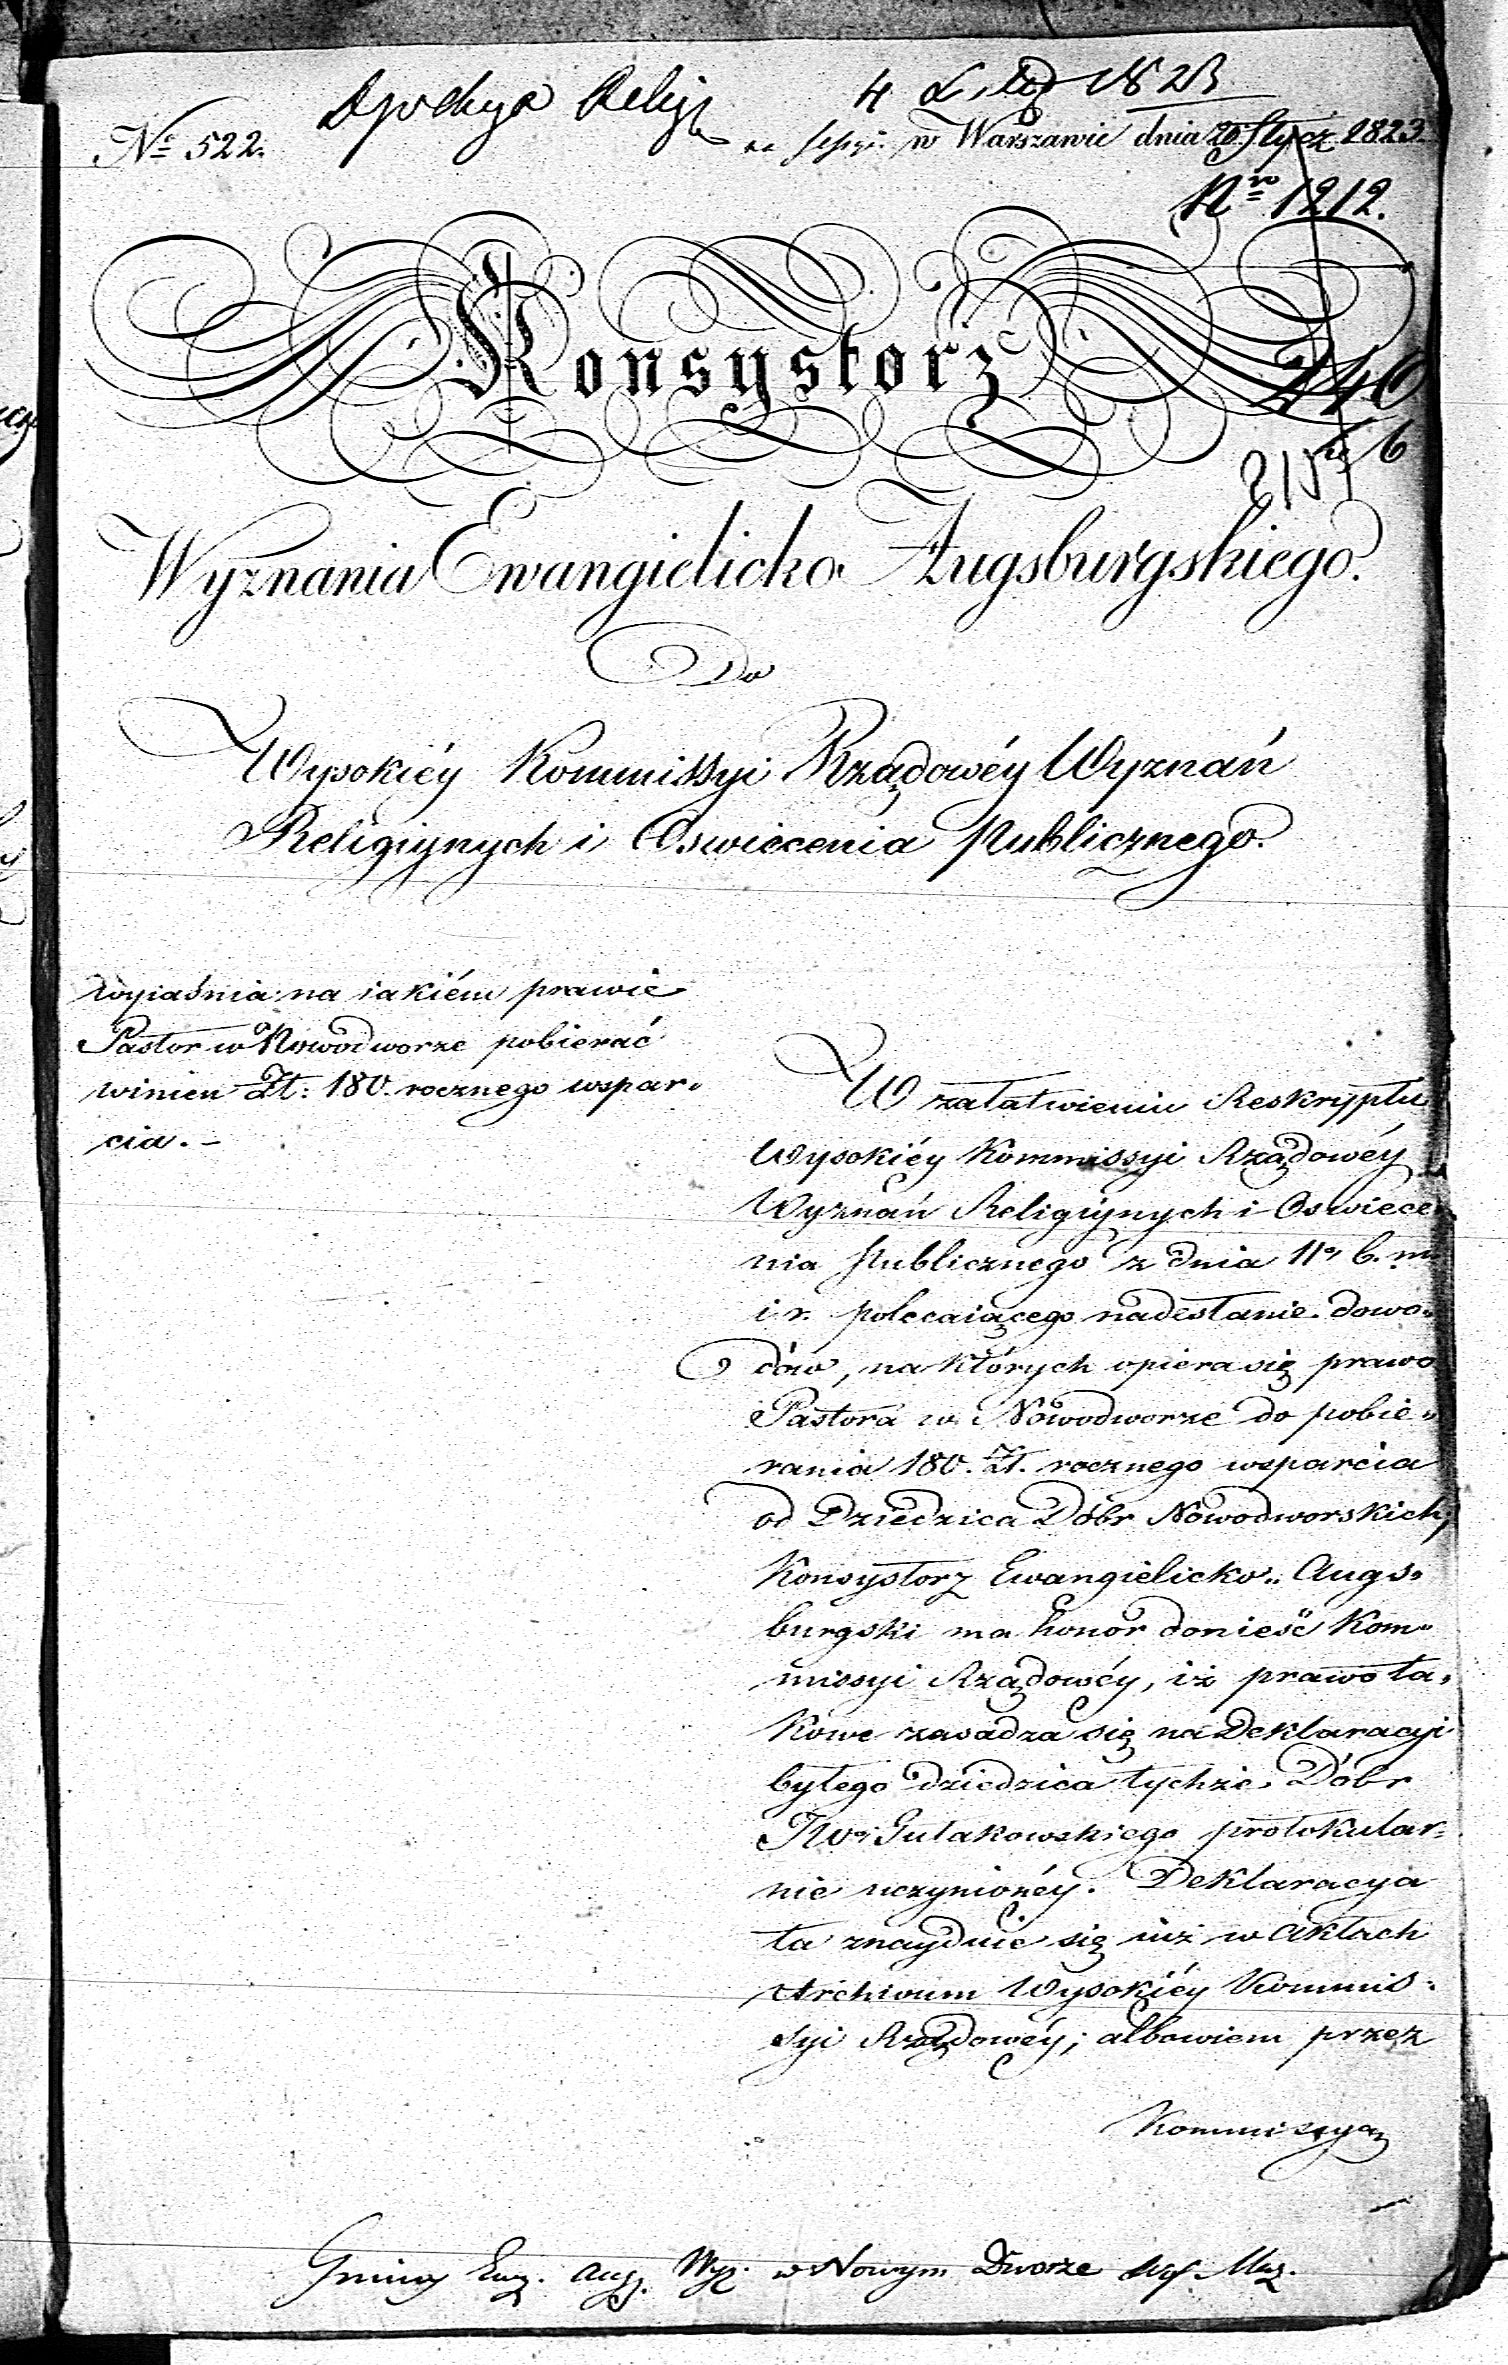 4 Lut. 1823
№ 522. na sessyi. w Warszawie dnia 20 Stycz 1823.
Nro 1212.
Konsystorz
240
Wyznania Ewangielicko Augsburgskiego.
Do
Wysokiéy Kommissyi Rządowéy Wyznań
Religiynych i Oswiecenia Publicznego.
wyiaśnia na iakiém prawie
Pastor w Nowodworze pobierać
winien Zł: 180. rocznego wspar„
cia. –
W załatwieniu Reskryptu
Wysokiéy Kommissyi Rządowéy
Wyznań Religiynych i Oswiece
nia Publicznego z dnia 11o b. m.
i r. polecaiącego nadesłanie dowo„
dów, na których opiera się prawo
Pastora w Nowodworze do pobie„
rania 180. Zł. rocznego wsparcia
od Dziedzica Dóbr Nowodworskich,
Konsystorz Ewangielicko„ Augs„
burgski ma honor donieść Kom„
missyi Rządowéy, iż prawo ta„
kowe zasadza się na Deklaracyi
byłego dziedzica tychże Dóbr
JWo Gutakowskiego protokular„
nie uczynionéy. Deklaracya
ta znayduie się iuż w Aktach
Archivum Wysokiéy Kommis„
syi Rządowéy; albowiem przez
Kommissyą
Gminy Ewg. Augs. Wyz. w Nowym Dworze